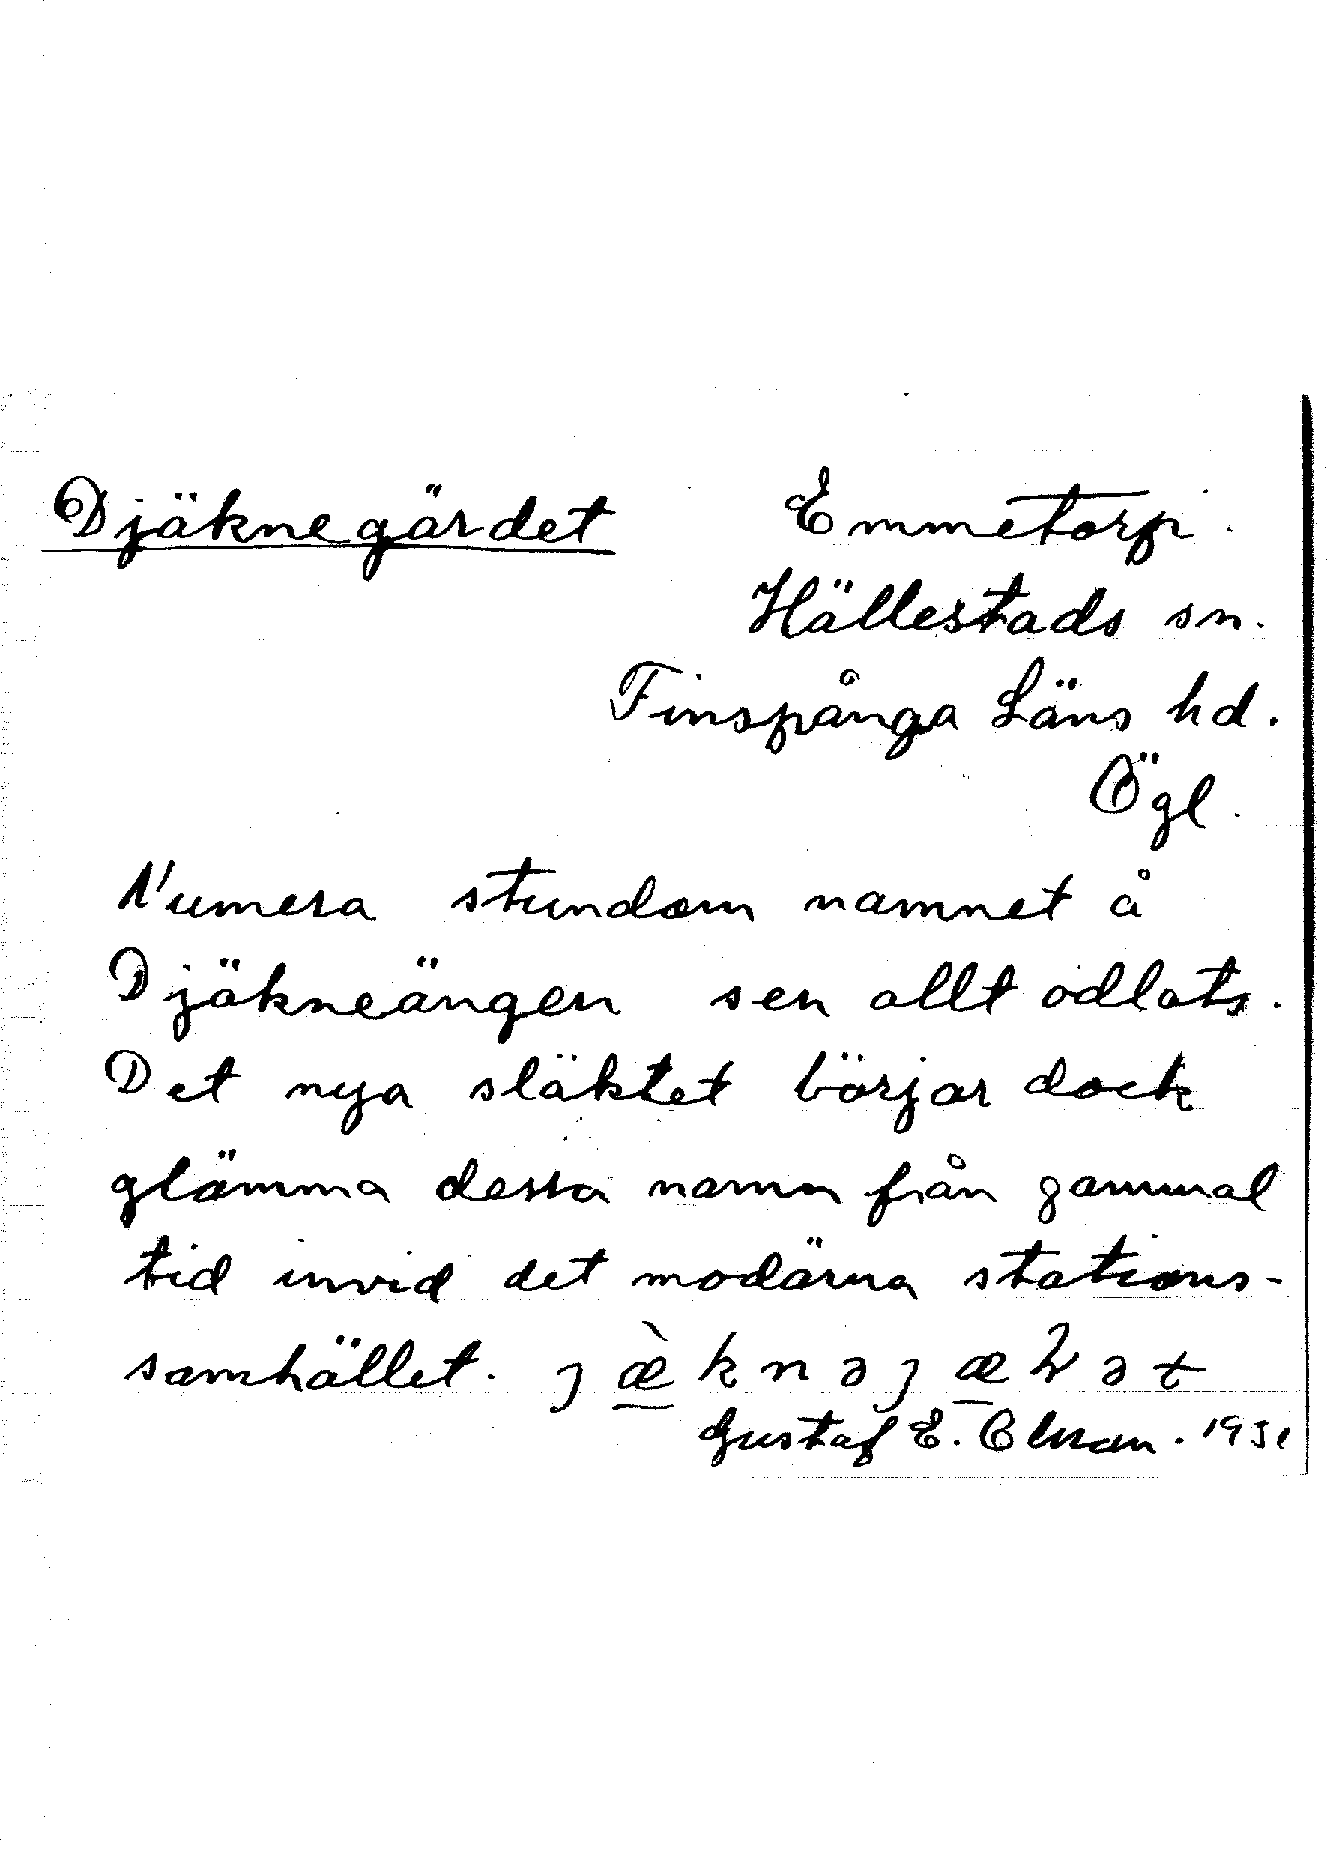 Djäknegärdet
Emmetorp.
Hällestads sn.
Finspånga Läns hd.
Ögl.
Numera stundom namnet å
Djäkneängen sen allt odlats.
Det nya släktet börjar dock
glömma dessa namn från gammal
tid invid det modärna stations-
samhället. j æ̀ k n ə j æ t
Gustaf E. 1931